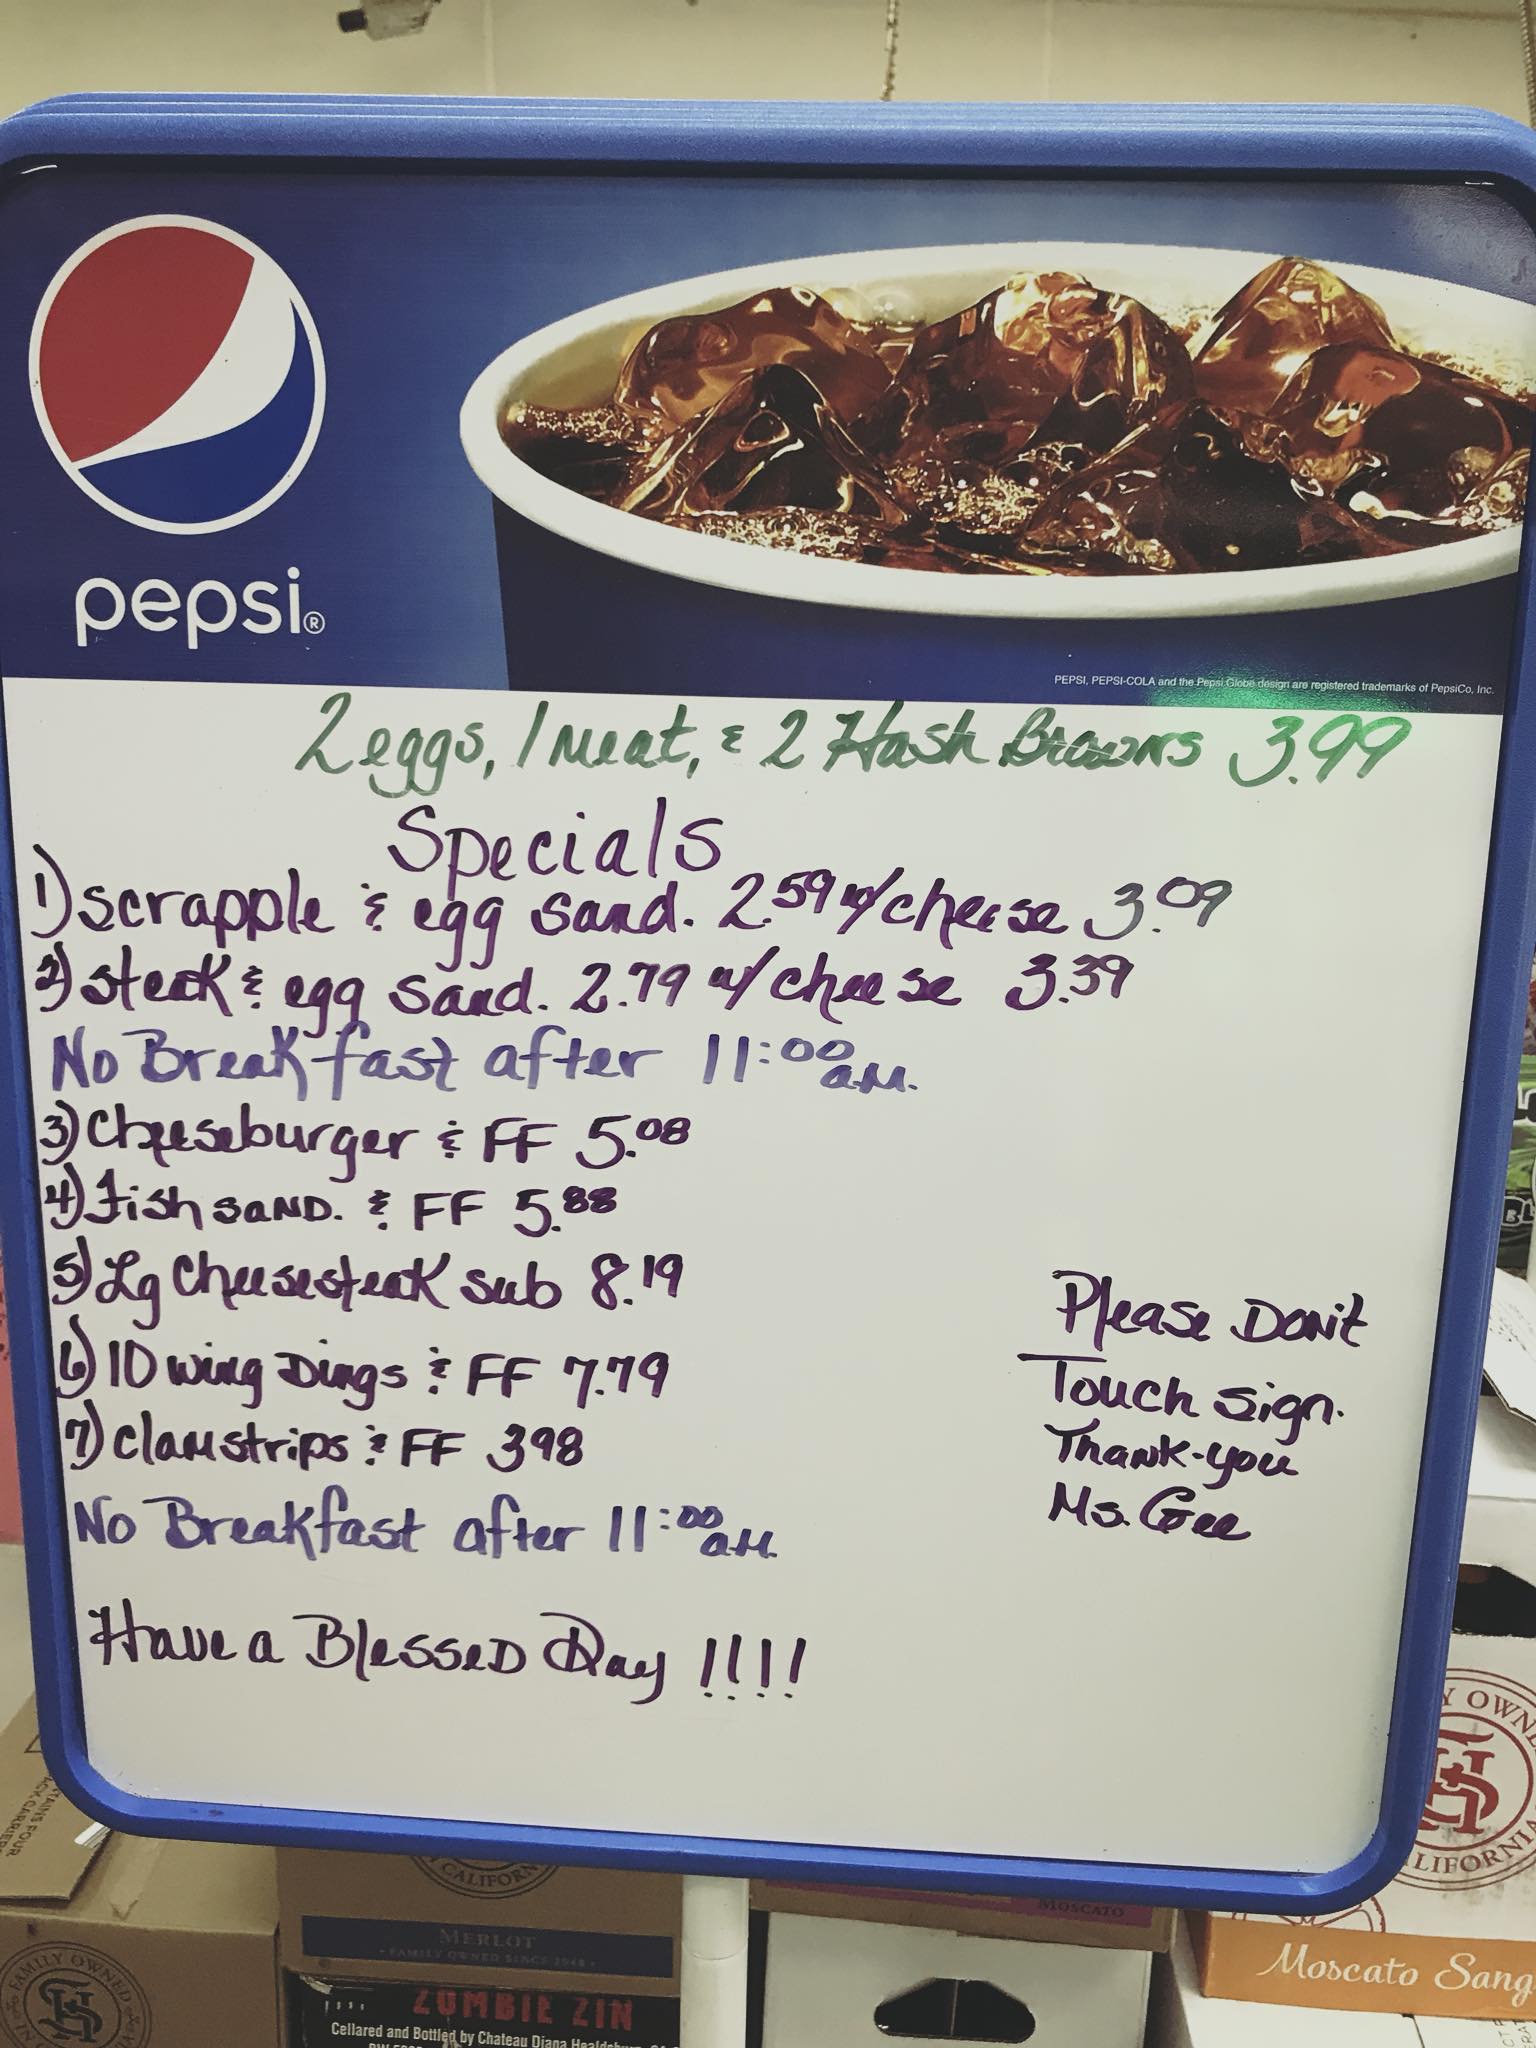 pepsi®
PEPSI, PEPSI-COLA and the Pepsi Globe design are registered trademarks of PepsiCo, Inc.
2 eggs, 1 meat, & 2 Hash Browns 3.99
Specials
1) scrapple & egg sand. 2.59 w/cheese 3.09
2) steak & egg sand. 2.79 w/cheese 3.39
No Breakfast after 11:00 a.m.
3) Cheeseburger & FF 5.08
4) Fish sand. & FF 5.88
5) Lg Cheesesteak sub 8.19
6) 10 wing Dings & FF 7.79
7) clamstrips & FF 398
No Breakfast after 11:00 a.m.
Have a Blessed Day !!!!
Please Don't
Touch sign.
Thank-you
Ms. Gee
Y OWNE
CALIFORNIA
CALIFORN
MERLOT
• FAMILY OWNED SINCE
MOSCATO
FAMILY OWNED
Moscato Sang
ZOMBIE ZIN
Cellared and Bottled by Chateau Diana Healdsburg